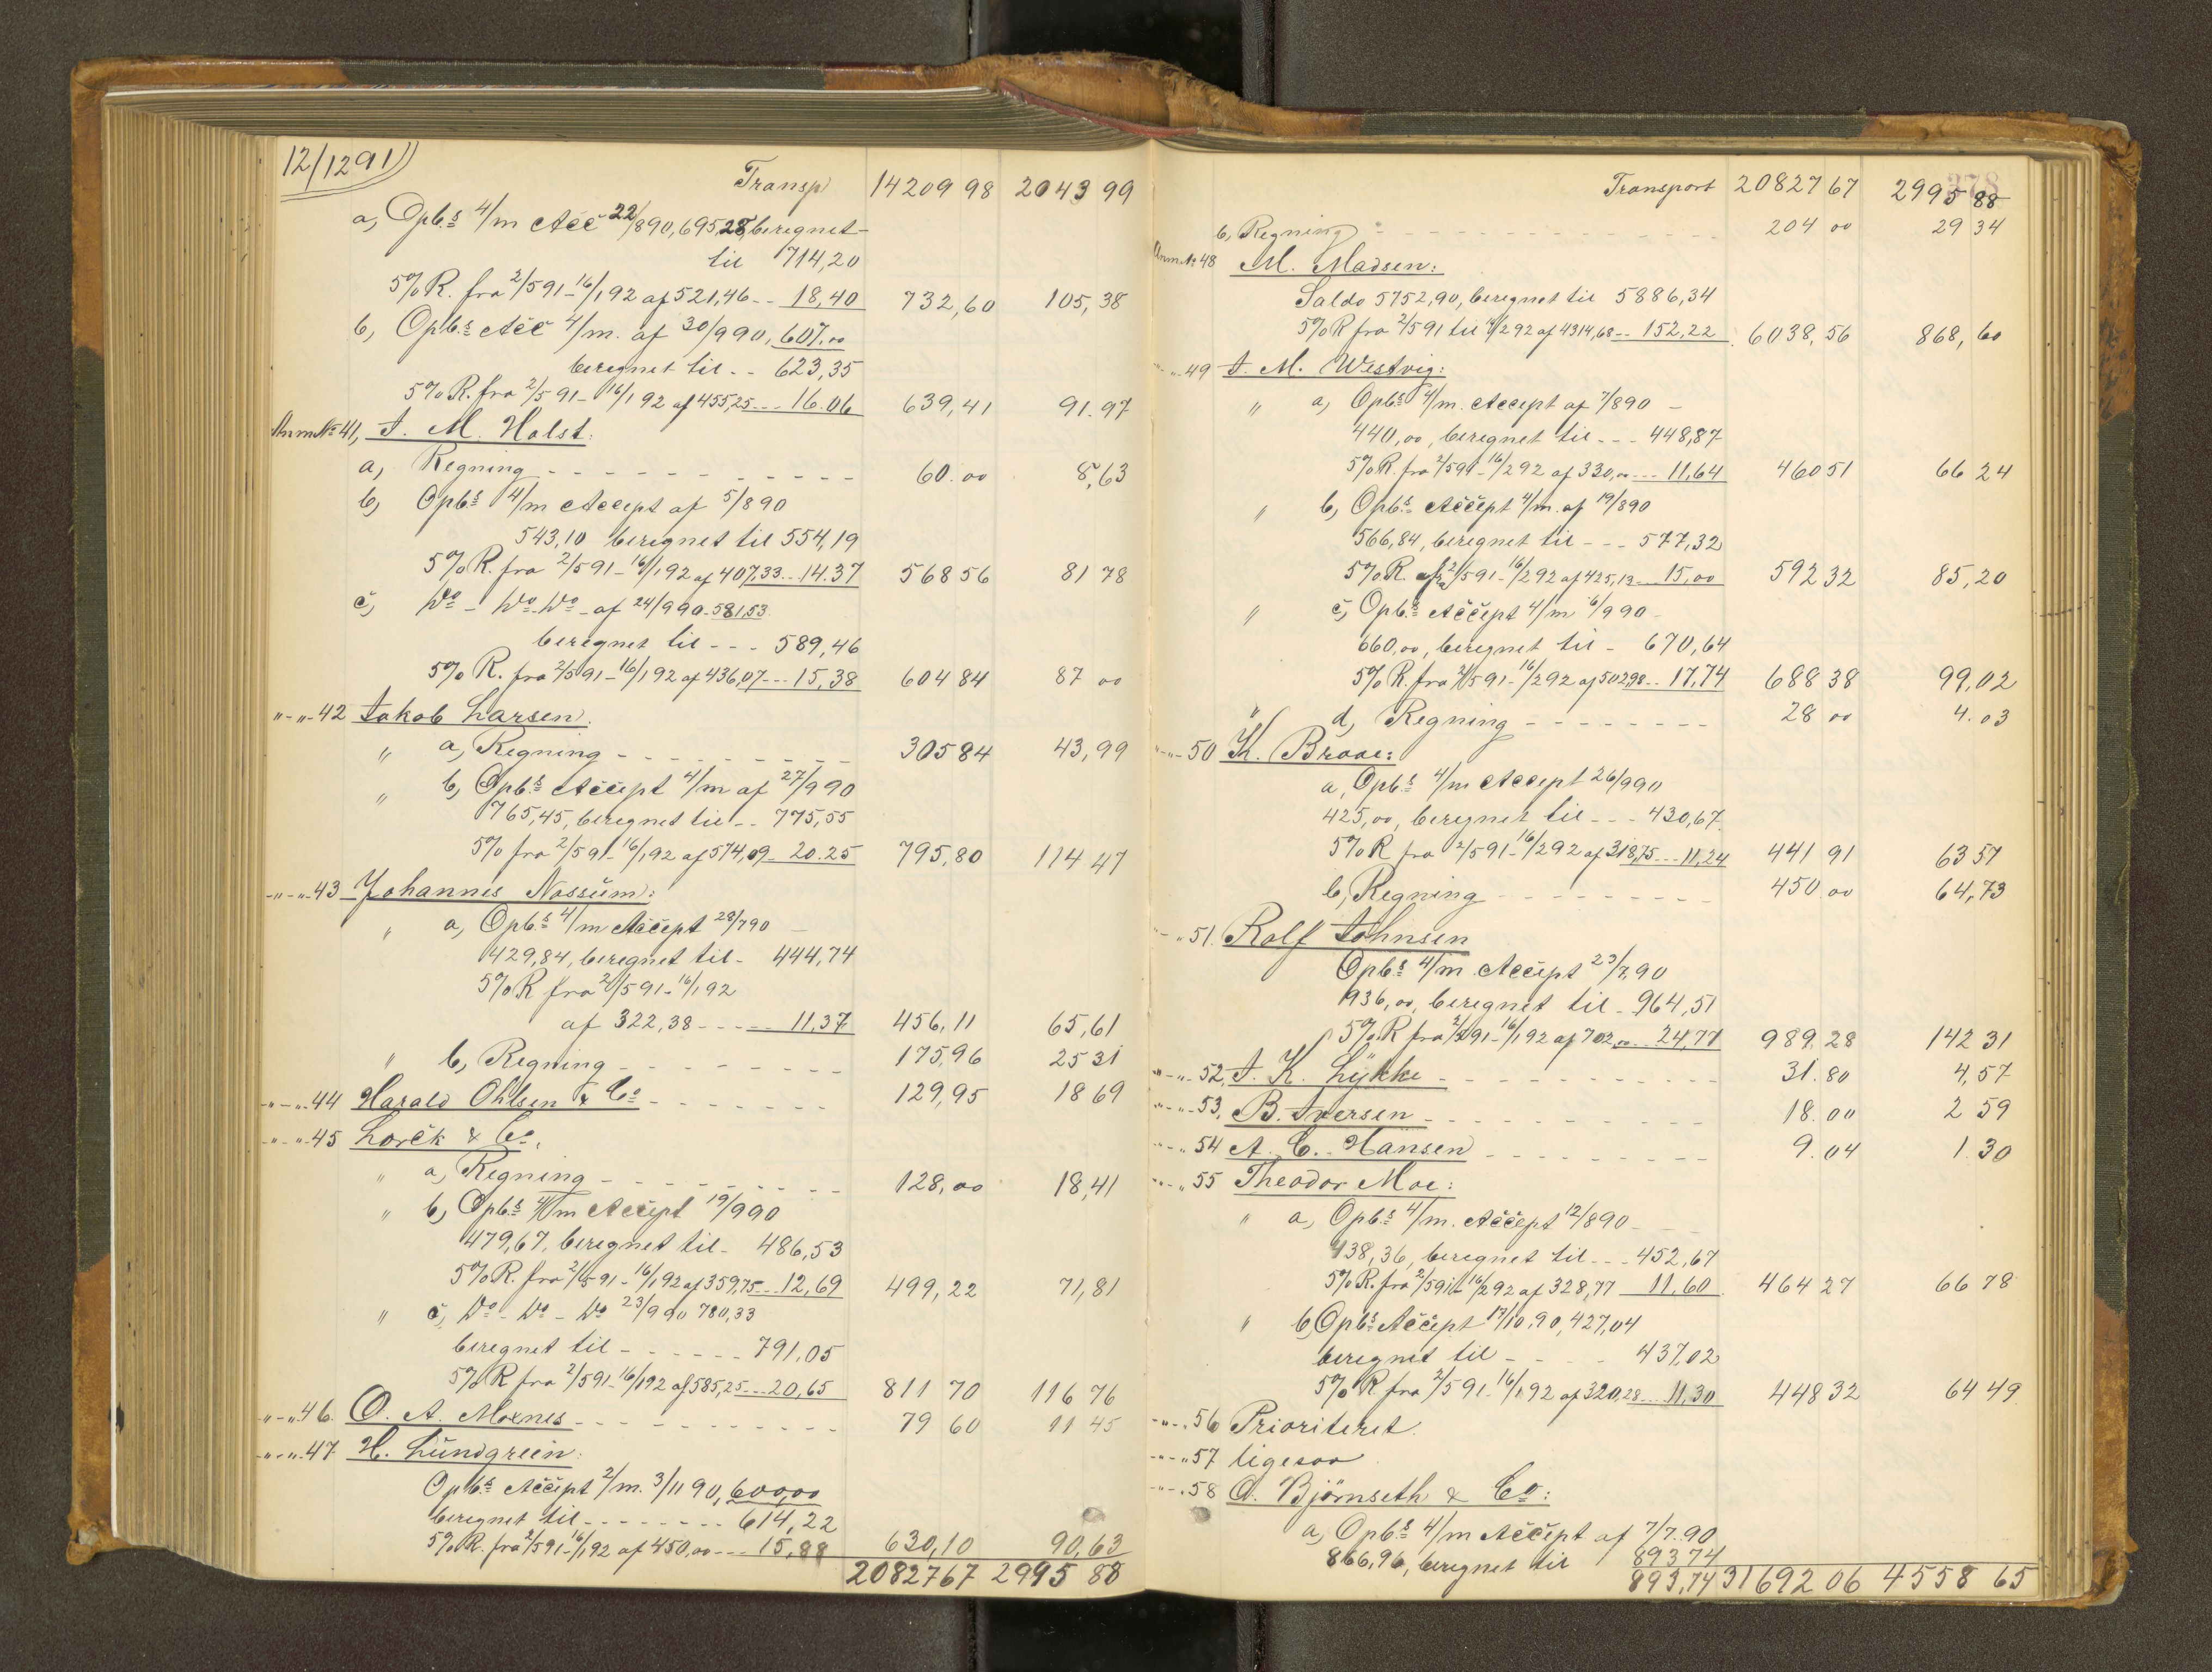 12/1291
Transp 14209 98 2043 99
a, Opb.s 4/m Acc 22/890, 695,28, beregnet
til 714,20
5% R. fra 2/591-16/192 af 521,46 -- 18,40 732,60 105,38
b, Opb.s Acc 4/m. af 30/990, 607,00
beregnet til -- 623,35
5% R. fra 2/591-16/192 af 455,25 --- 16.06 639,41 91.97
Anm No 41, J. M. Holst:
a, Regning - - - - - - - - - - 60.00 8,63
b, Opb.s 4/m Accept af 5/890
543,10 beregnet til 554,19
5% R. fra 2/591-16/192 af 407,33 -- 14.37 568 56 81 78
c, Do - Do - Do - af 24/990 - 581,53
beregnet til - - - 589,46
5% R. fra 2/591-16/192 af 436,07 --- 15,38 604 84 87 00
"-"-42 Jakob Larsen:
" a, Regning - - - - - - - - 305 84 43,99
" b, Opb.s Accept 4/m af 27/990
765,45, beregnet til -- 775,55
5% fra 2/591-16/192 af 574,09 - 20.25 795,80 114 47
-"-"-43 Johannes Nossum:
" a, Opb.s 4/m Accept 28/790 -
429,84, beregnet til - 444,74
5% R fra 2/591-16/192
af 322,38 - - - - - 11,37 456,11 65,61
" b, Regning - - - - - - - - 175,96 25 31
-"-"-44 Harald Ohlsen & Co - - - - - - - 129,95 18 69
-"-"-45 Lorck & Co.
" a, Regning - - - - - - - - 128,00 18,41
" b, Opb.s 4/m Accept 19/990
479,67, beregnet til - 486,53
5% R. fra 2/591-16/192 af 359,75 --- 12,69 499,22 71,81
" c, Do - Do - Do 23/990 780,33
beregnet til - - - - - - 791.05
5% R fra 2/591-16/192 af 585,25 --- 20,65 811 70 116 76
"-"-46. O. A. Moxnes - - - - - - - - - 79 60 11 45
-"-"-47 H. Lundgreen:
Opb.s Accept 2/m. 3/11 90, 600,00
beregnet til - - - - - - - - 614,22
5% R. fra 2/591-16/192 af 450,00 --- 15,88 630,10 90,63
20827 67 2995 88
Transport 20827 67 2995 88
b, Regning - - - - - - - - - - - - - 204 00 29 34
Anm. No 48 M. Madsen:
Saldo 5752,90, beregnet til 5886,34
5% R fra 2/591 til 16/292 af 4314,68 -- 152,22 6038,56 868,60
"-"-49 J. M. Westvig:
" a, Opb.s 4/m. Accept af 7/890 -
440,00, beregnet til - - - 448,87
5% R. fra 2/591-16/292 af 330,00 --- 11,64 460 51 66 24
" b, Opb.s Accept 4/m. af 19/890
566,84, beregnet til - - - 577,32
5% R. fra 2/591-16/292 af 425,13 --- 15,00 592 32 85,20
" c, Opb.s Accept 4/m 6/990 -
660,00, beregnet til - 670,64
5% R fra 2/591-16/292 af 502,98 -- 17,74 688 38 99,02
" d, Regning - - - - - - - - 28 00 4.03
"-"-50 K. Braae:
a, Opb.s 4/m Accept 26/990
425,00, beregnet til - - - 430,67
5% R fra 2/591-16/292 af 318,75 --- 11,24 441 91 63 57
b, Regning - - - - - - - - - 450.00 64,73
"-"51. Rolf Johnsen
Opb.s 4/m Accept 23/7.90
936,00, beregnet til - 964,51
5% R fra 2/591-16/192 af 702,00 -- 24,77 989,28 142 31
"-"-52, J. K. Lykke - - - - - - - - - - - 31.80 4,57
"-"-53, B. Iversen - - - - - - - - - - 18.00 2 59
"-"-54 A. C. Hansen - - - - - - - - - 9.04 1.30
"-"-55 Theodor Moe:
" a, Opb.s 4/m. Accept 12/890 -
438,36, beregnet til - - - 452,67
5% R. fra 2/591-16/292 af 328,77 11.60 464 27 66 78
" b, Opb.s Accept 17/10.90, 427,04
beregnet til - - - - 437,02
5% R fra 2/591-16/192 af 320,28 --- 11,30 448 32 64 49
-"-"56 Prioriteret.
-"-"57 ligesaa
-"-"58 O. Björnseth & Co:
a, Opb.s 4/m Accept af 7/7.90
866,96, beregnet til 893 74
893,74 31692 06 4558 65